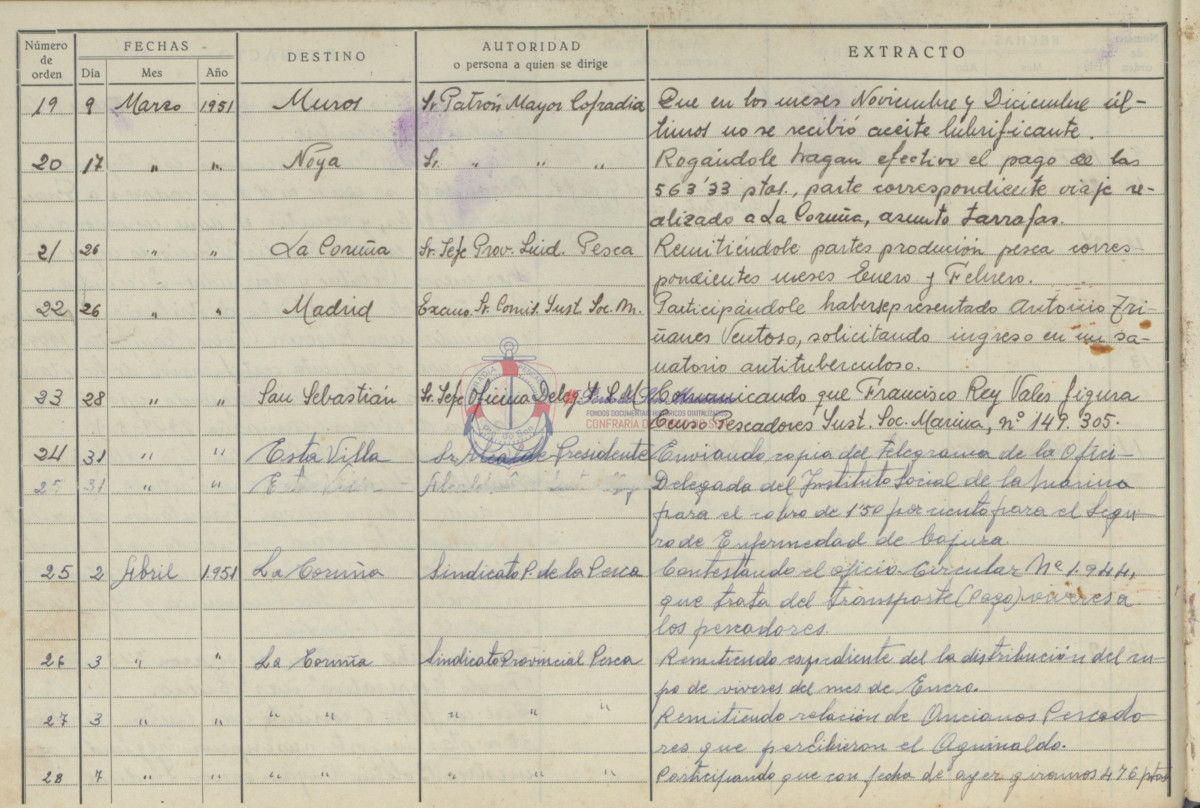 Número de orden | FECHAS | DESTINO | AUTORIDAD o persona a quien se dirige | EXTRACTO
Día | Mes | Año
19 | 9 | Marzo | 1951 | Muros | Sr. Patrón Mayor Cofradia | Que en los meses Noviembre y Diciembre úl-
timos no se recibió aceite lubrificante.
20 | 17 | " | " | Noya | Sr. " " " | Rogándole hagan efectivo el pago de las
563'33 ptas., parte correspondiente viaje re-
alizado a La Coruña, asunto tarrafas.
21 | 26 | " | " | La Coruña | Sr. Jefe Prov. Sind. Pesca | Remitiéndole partes produción pesca corres-
pondientes meses Enero y Febrero.
22 | 26 | " | " | Madrid | Excmo. Sr. Comis. Inst. Soc. M. | Participándole haberse presentado Antonio
Ventoso, solicitando ingreso en un sa-
natorio antituberculoso.
23 | 28 | " | " | San Sebastián | Sr. Jefe Oficina Deleg. I. S. M. | Comunicando que Francisco Rey Vales figura
Censo Pescadores Inst. Soc. Marina, nº 149.305.
FONDOS DOCUMENTAIS HISTÓRICOS DIXITALIZADOS
CONFRARÍA
24 | 31 | " | " | Esta Villa | Sr. Alcalde Presidente | Enviando copia del telegrama de la Ofici-
25 | 31 | " | " | Esta Villa | Delegada del Instituto Social de la Marina
para el cobro de 1'50 por ciento para el Segu-
ro de Enfermedad de bajura.
25 | 2 | Abril | 1951 | La Coruña | Sindicato P. de la Pesca | Contestando el oficio-Circular Nº 1.944,
que trata del transporte (Pago) viveres a
los pescadores.
26 | 3 | " | " | La Coruña | Sindicato Provincial Pesca | Remitiendo espediente del la distribución del cu-
po de viveres del mes de Enero.
27 | 3 | " | " | " " | " " " | Remitiendo relación de Ancianos Pescado-
res que percibieron el Aguinaldo.
28 | 7 | " | " | " " | " " " | Participando que con fecha de ayer giramos 476 ptas